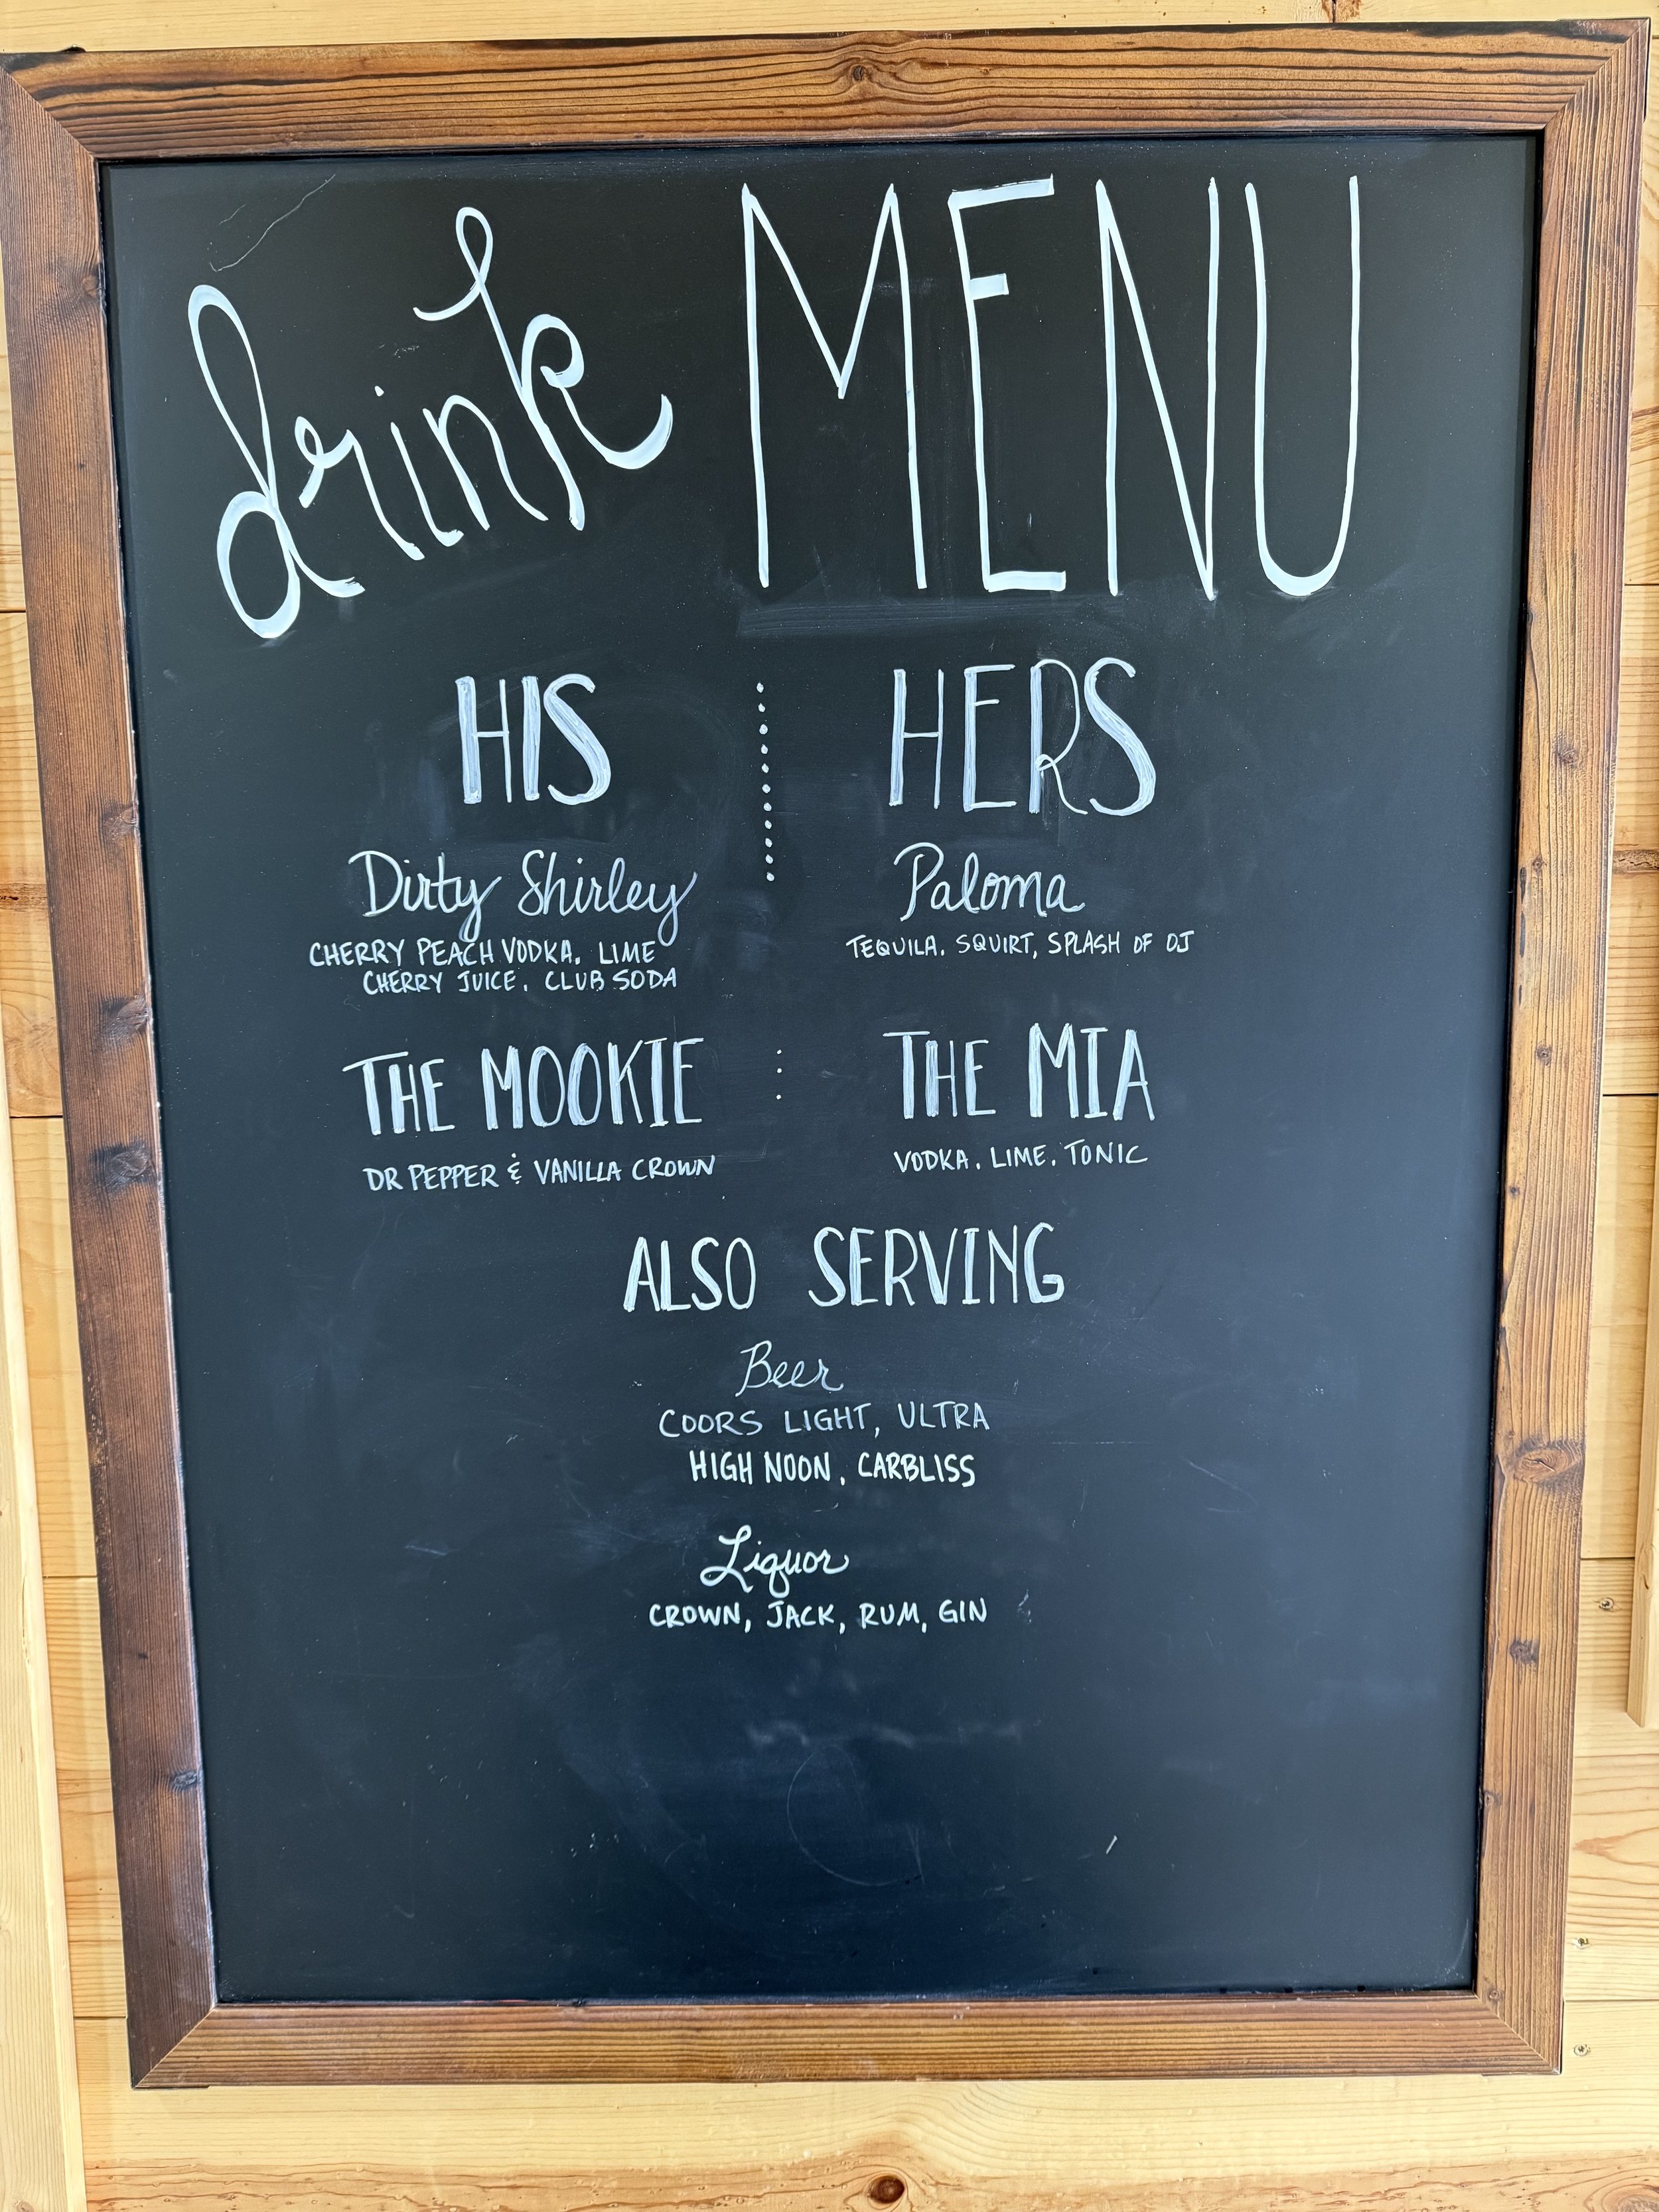 drink MENU
HIS
HERS
Dirty Shirley
CHERRY PEACH VODKA, LIME
CHERRY JUICE, CLUB SODA
Paloma
TEQUILA, SQUIRT, SPLASH OF OJ
THE MOOKIE
DR PEPPER & VANILLA CROWN
THE MIA
VODKA, LIME, TONIC
ALSO SERVING
Beer
COORS LIGHT, ULTRA
HIGH NOON, CARBLISS
Liquor
CROWN, JACK, RUM, GIN